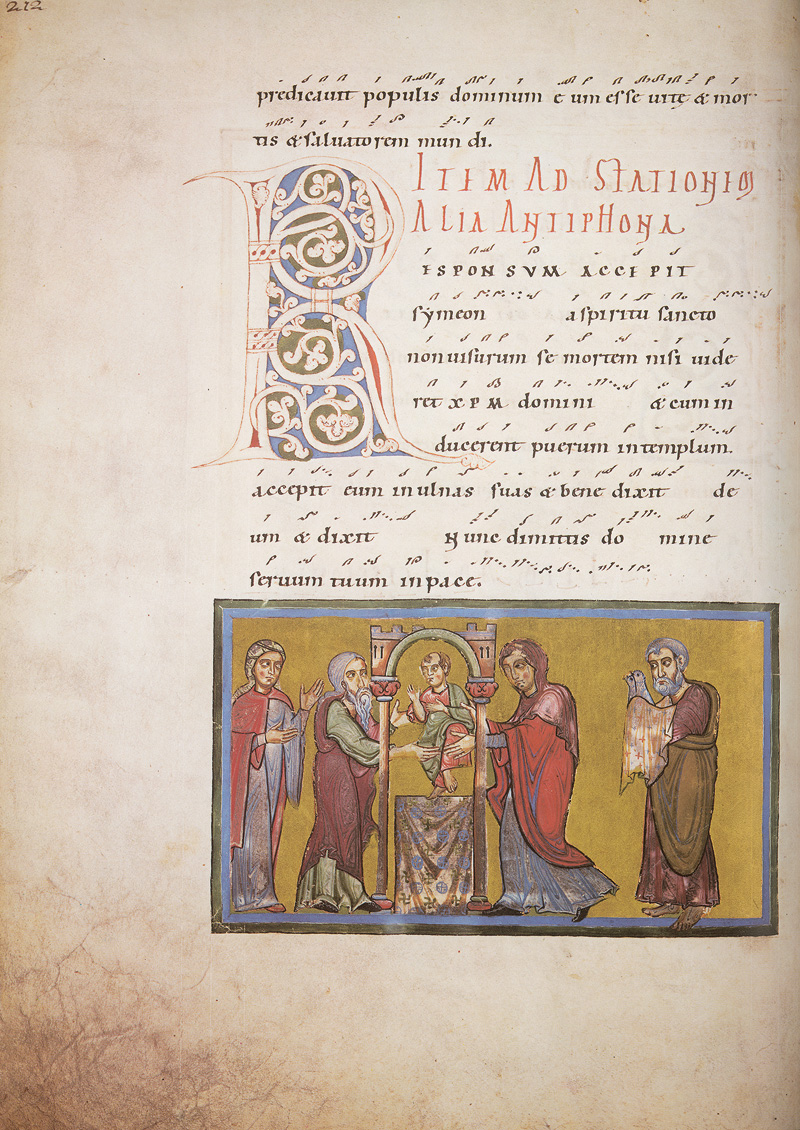 212
predicauit populis dominum e um esse uitę & mor
tis & saluatorem mun di.
ITEM AD STATIONEM
ALIA ANTIPHONA
R ESPONSVM ACCEPIT
sẏmeon a spiritu sancto
non uisurum se mortem nisi uide
ret XPM domini & cum in
ducerent puerum in templum.
accepit eum in ulnas suas & bene dixit de
um & dixit Nunc dimittis do mine
seruum tuum in pace.